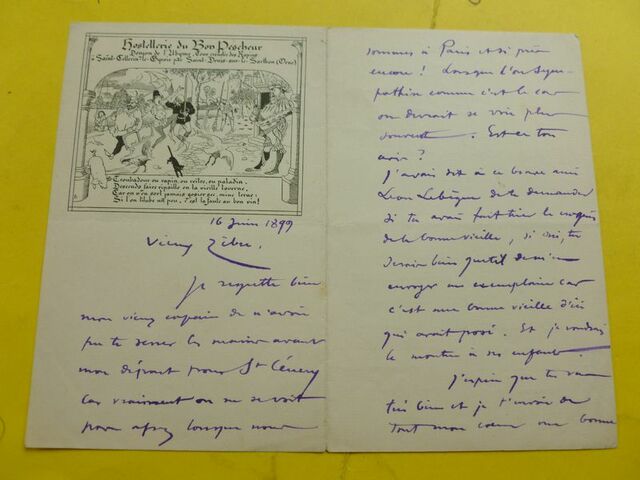 Hostellerie du Bon Pescheur
Donjon de l'Abyme, Tour crénelée des Roynes
à Saint-Célerin-le-Gérois par Saint-Denis-sur-le-Sarthon (Orne)
Troubadour ou rapin, ou reître, ou paladin,
Descends faire ripaille en la vieille taverne,
Car on n'en sort jamais gosier sec, mine terne:
Si l'on titube un peu, c'est la faute au bon vin!
16 Juin 1899
Vieux
Je regrette bien
mon vieux copain de n'avoir
pu te serrer les mains avant
mon départ pour St Cénery
car vraiment on ne se voit
pas assez lorsque nous
sommes à Paris et si près
encore! Lorsque l'on sym-
pathise comme c'est le cas
on devrait se voir plus
souvent. Est-ce ton
avis?
J'avais dit à ce brave ami
Léon Lebègue de te demander
si tu avais fait tirer le croquis
de la bonne vieille, si oui, tu
serais bien gentil de m'en
envoyer un exemplaire car
c'est une bonne vieille d'ici
qui avait posé. Et je voudrais
le montrer à ses enfants.
J'espère que tu vas
très bien et je t'envoie de
tout mon cœur une bonne